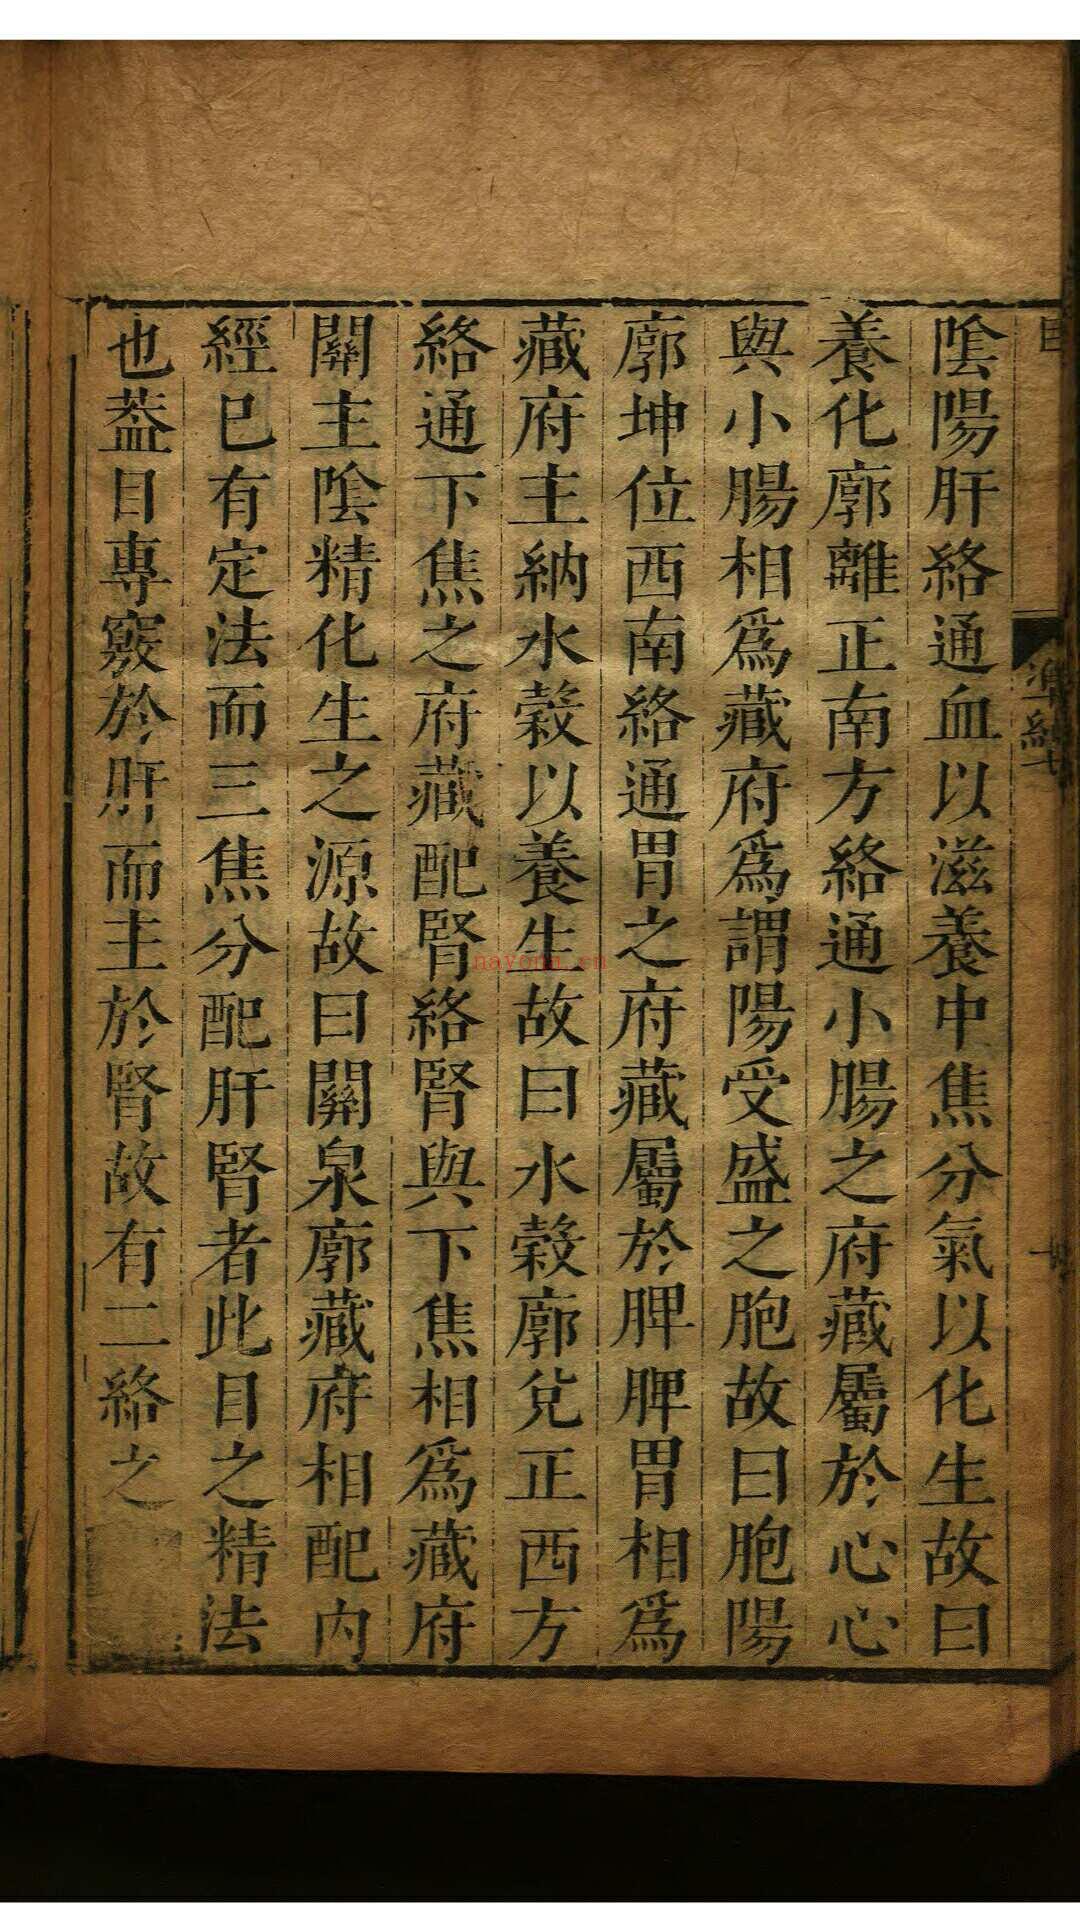 陰陽肝絡通血以滋養中焦分氣以化生故曰
養化廓離正南方絡通小腸之府藏屬於心心
與小腸相為藏府為謂陽受盛之胞故曰胞陽
廓坤位西南絡通胃之府藏屬於脾脾胃相為
藏府主納水穀以養生故曰水穀廓兌正西方
絡通下焦之府藏配腎絡腎與下焦相為藏府
關主陰精化生之源故曰關泉廓藏府相配內
經已有定法而三焦分配肝腎者此目之精法
也葢目專竅於肝而主於腎故有二絡之
nayona.cn